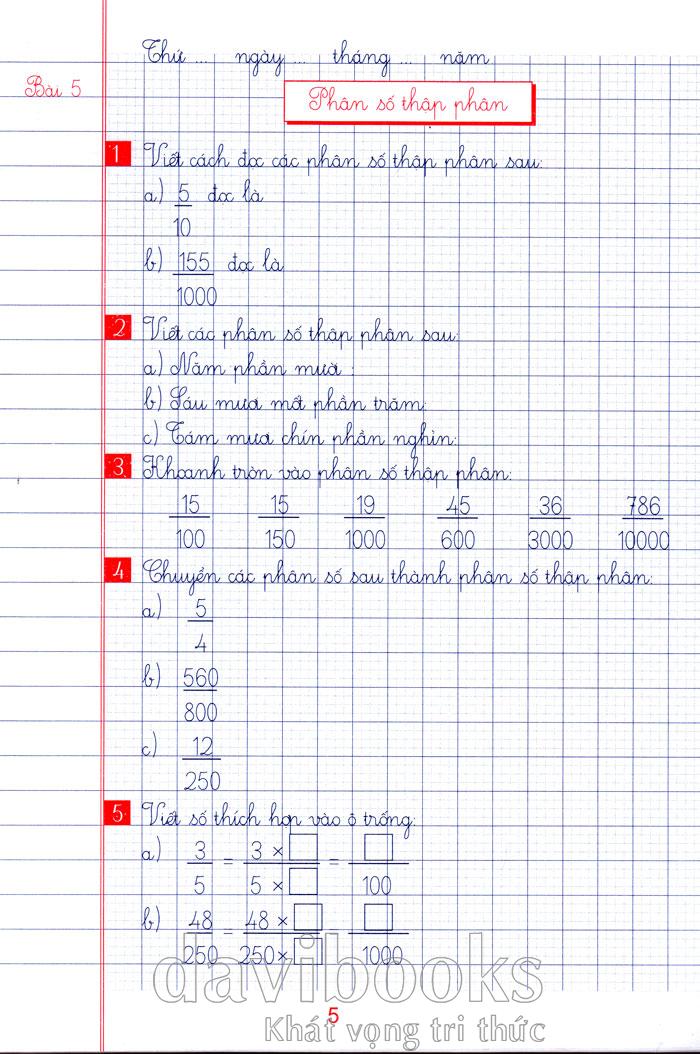 Thứ ... ngày ... tháng ... năm
Bài 5
Phân số thập phân
1 Viết cách đọc các phân số thập phân sau:
a) 5/10 đọc là
b) 155/1000 đọc là
2 Viết các phân số thập phân sau:
a) Năm phần mười :
b) Sáu mươi mốt phần trăm:
c) Tám mươi chín phần nghìn:
3 Khoanh tròn vào phân số thập phân:
15/100 15/150 19/1000 45/600 36/3000 786/10000
4 Chuyển các phân số sau thành phân số thập phân:
a) 5/4
b) 560/800
c) 12/250
5 Viết số thích hợp vào ô trống:
a) 3/5 = 3 × □/5 × □ = □/100
b) 48/250 = 48 × □/250 × □ = □/1000
davibooks
Khát vọng tri thức
5